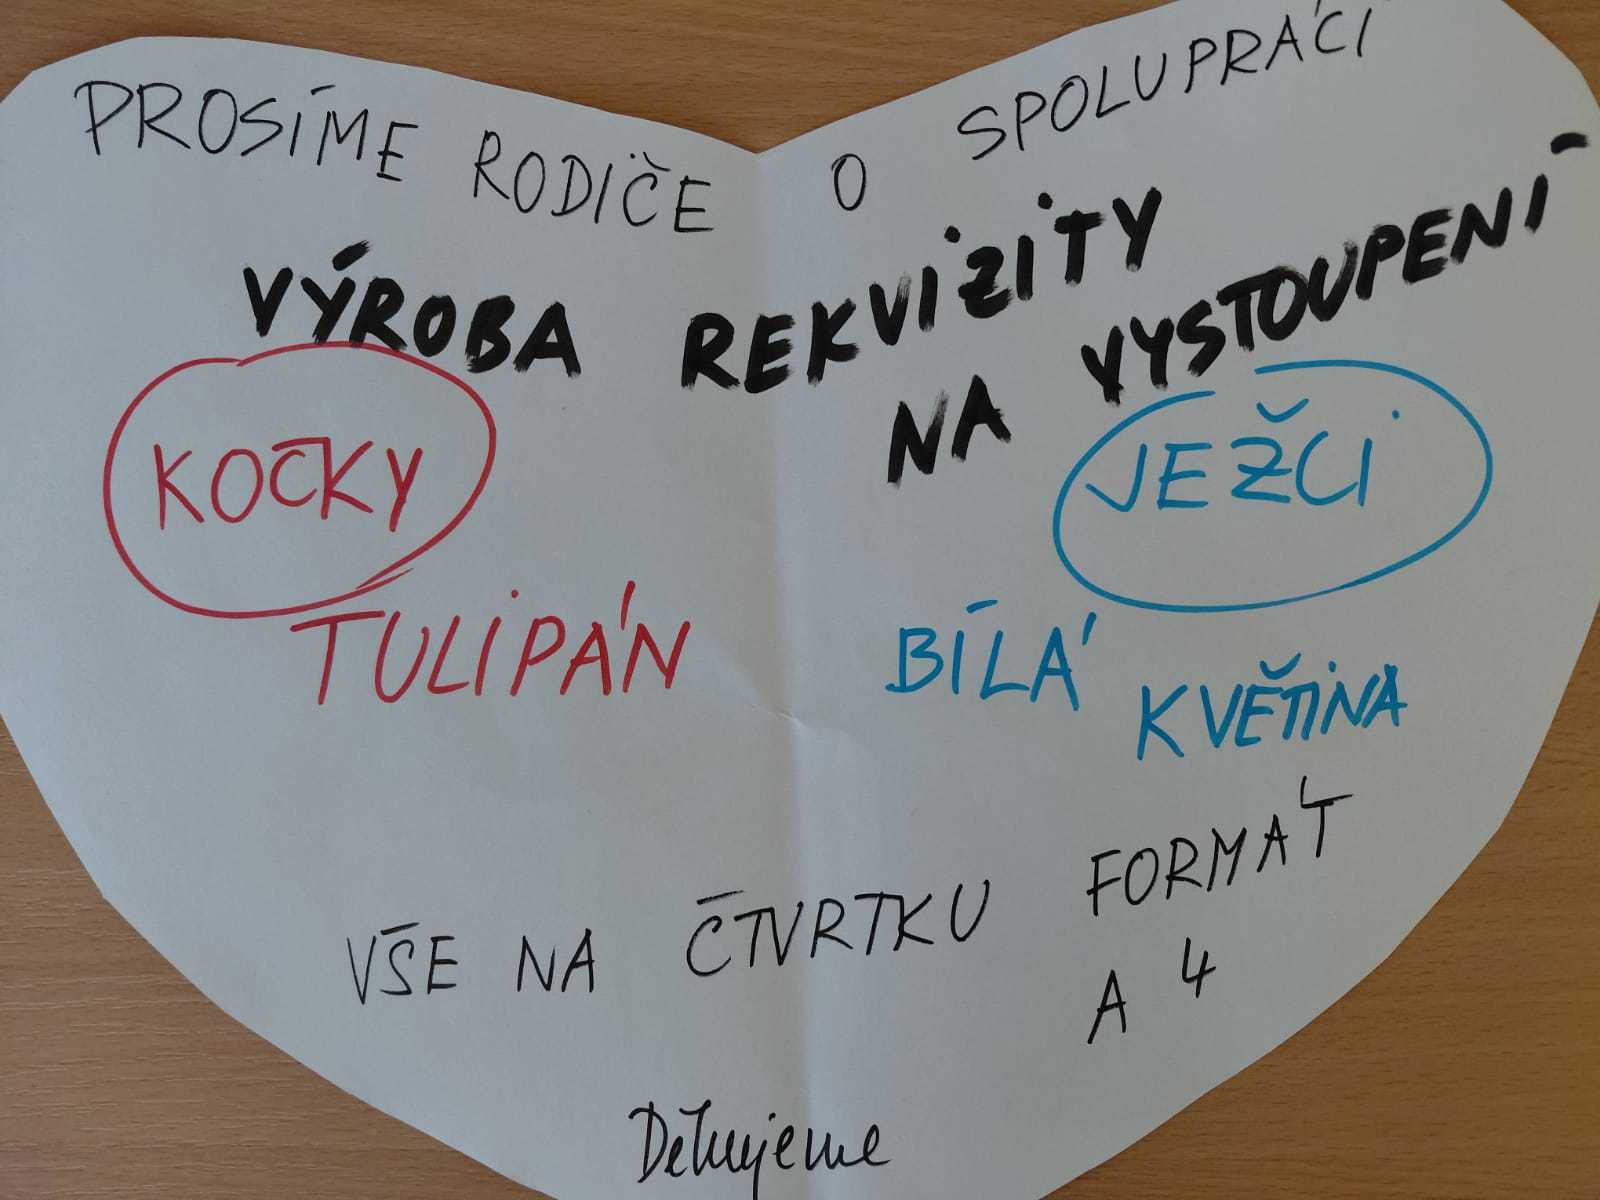 PROSÍME RODIČE O SPOLUPRÁCI
VÝROBA REKVIZITY
NA VYSTOUPENÍ
KOČKY
TULIPÁN
JEŽCI
BÍLÁ
KVĚTINA
VŠE NA ČTVRTKU FORMÁT
A4
Děkujeme